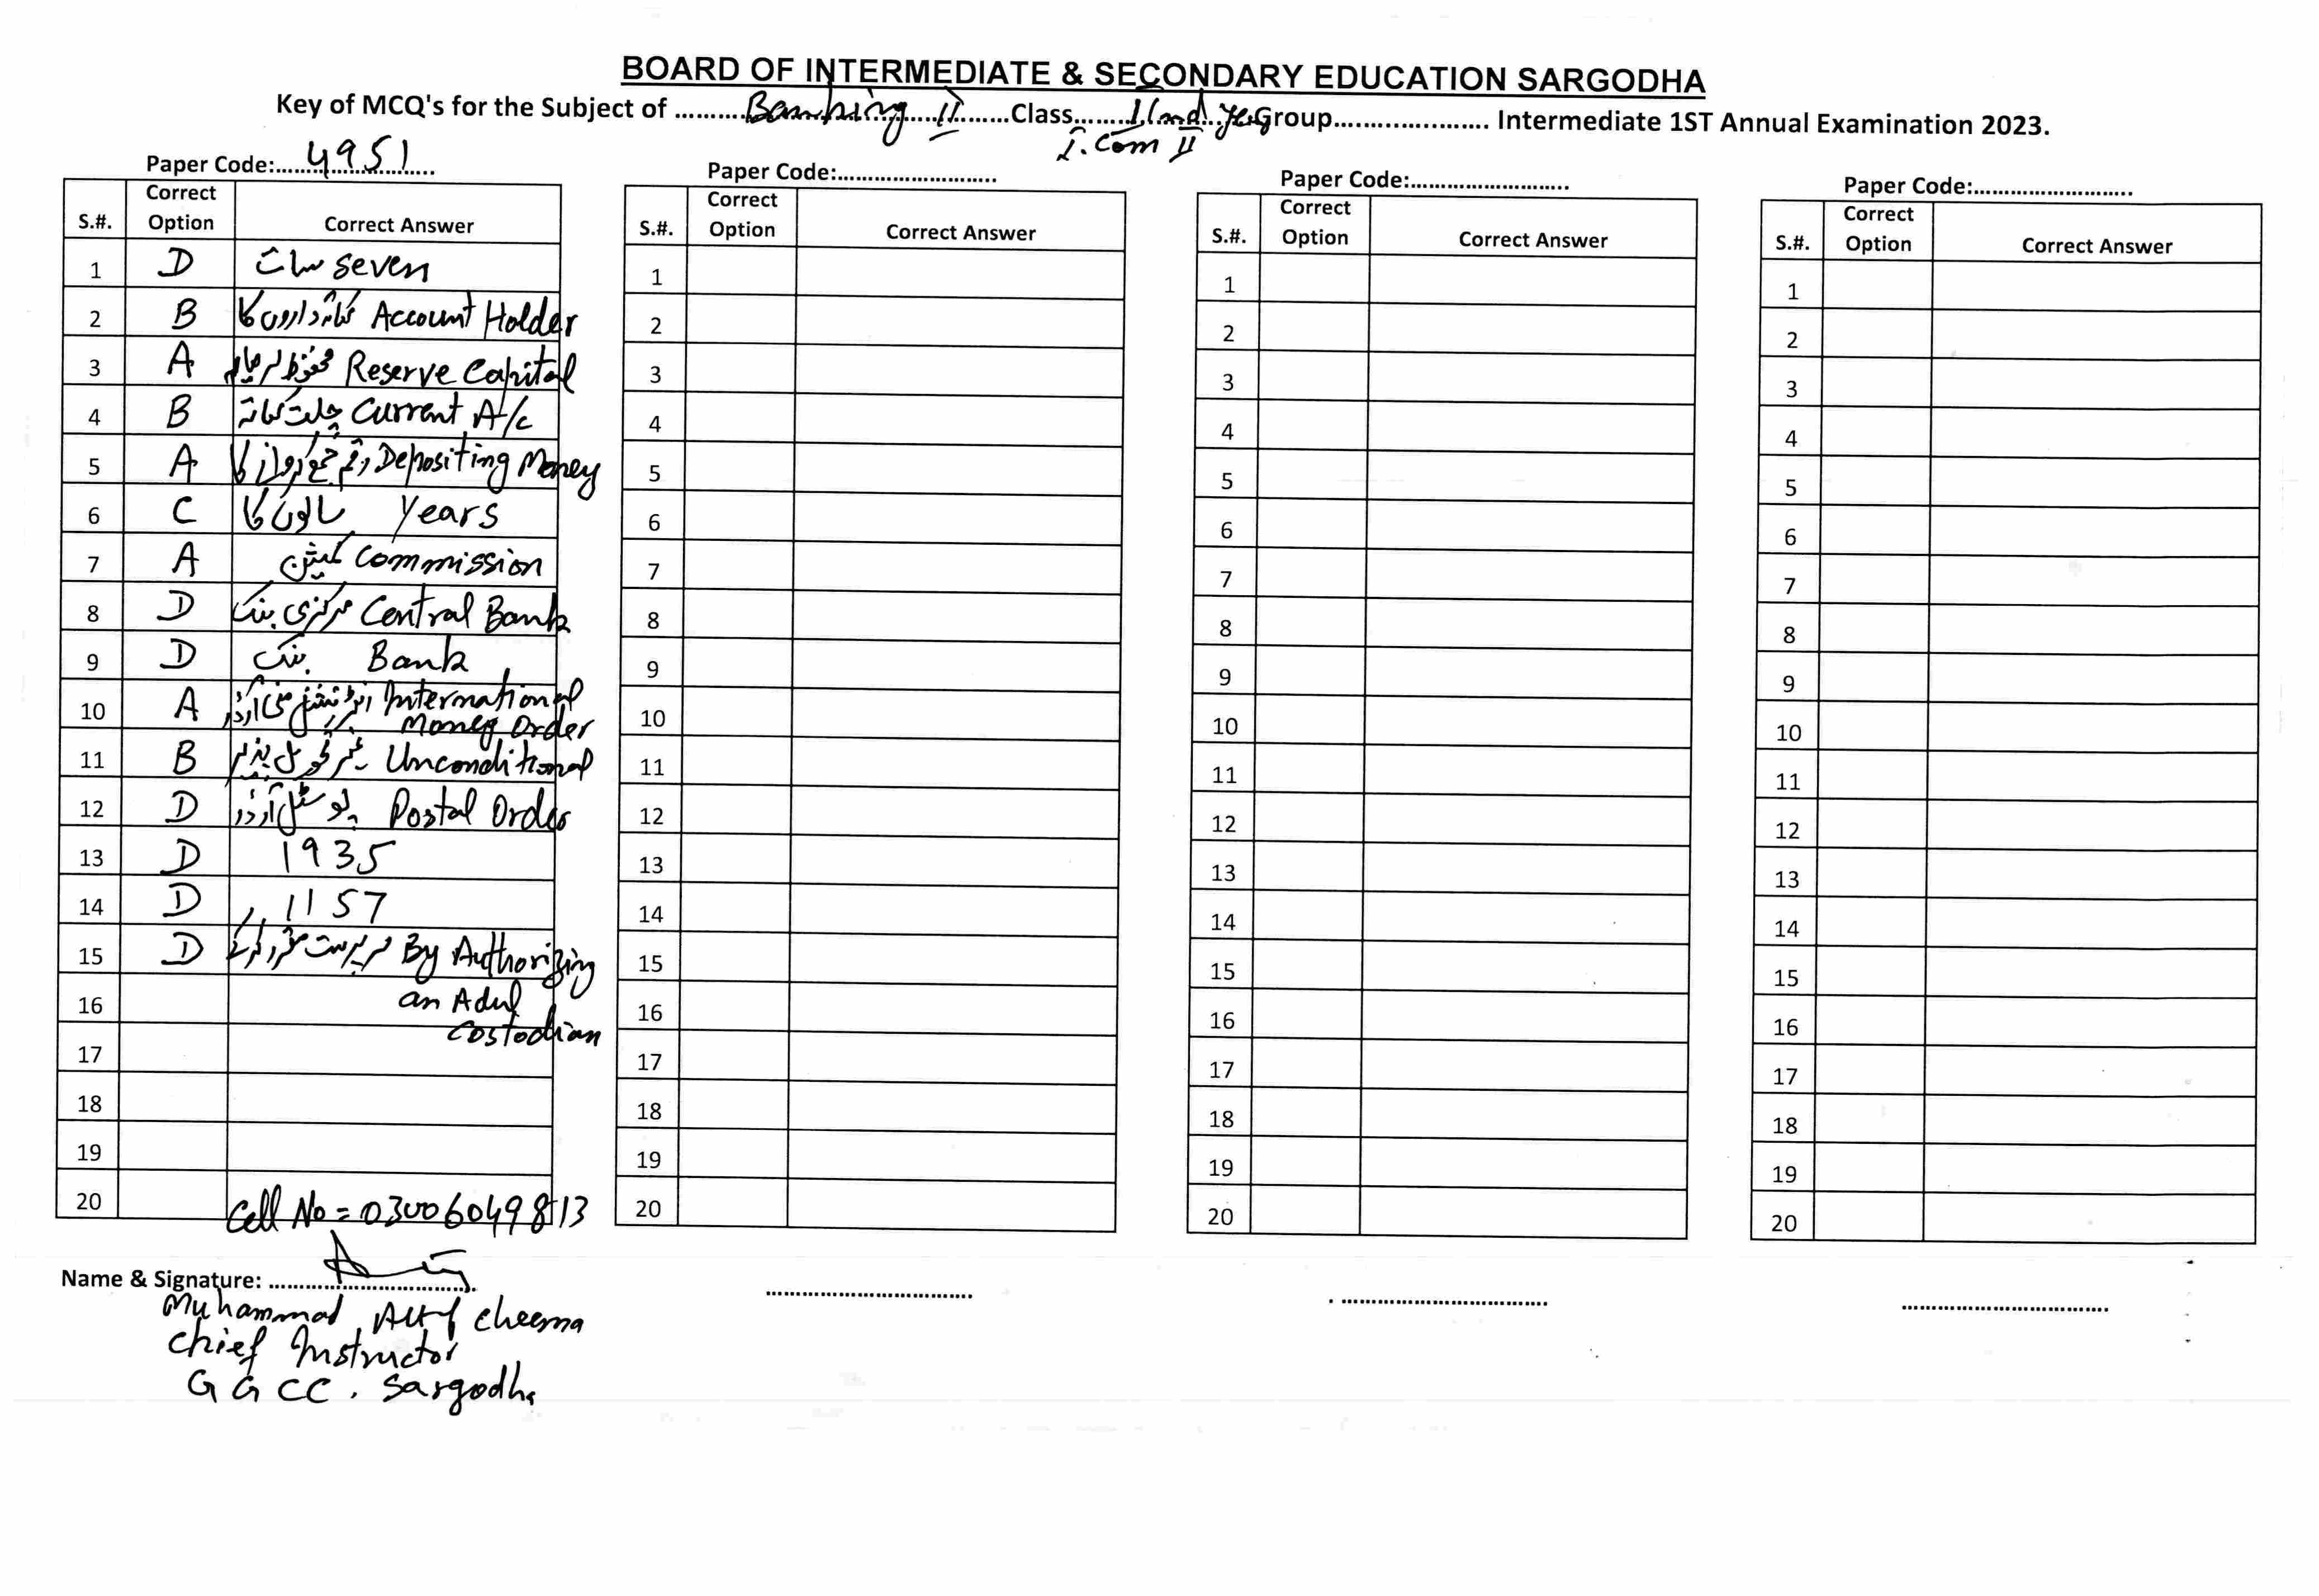 BOARD OF INTERMEDIATE & SECONDARY EDUCATION SARGODHA
Key of MCQ's for the Subject of ..........Banking II.......Class........IInd year Group...................... Intermediate 1ST Annual Examination 2023.
I.Com II
Paper Code:..4951..
S.#. Correct Option Correct Answer
1 D سات seven
2 B کھاتہ داروں کا Account Holder
3 A محفوظ سرمایہ Reserve Capital
4 B چلت کھاتہ Current A/c
5 A رقم جمع کروانے کا Depositing Money
6 C سالوں کا Years
7 A کمیشن Commission
8 D مرکزی بنک Central Bank
9 D بنک Bank
10 A انٹرنیشنل منی آرڈر International Money Order
11 B غیر Unconditional
12 D پوسٹل آرڈر Postal Order
13 D 1935
14 D 1157
15 D سرپرست مقرر کرکے By Authorizing
16 an Adul
costodian
17
18
19
20 Cell No = 03006049813
Name & Signature: ..............................
Muhammad cheema
chief Instructor
G G CC. Sargodha
Paper Code:...........................
S.#. Correct Option Correct Answer
1
2
3
4
5
6
7
8
9
10
11
12
13
14
15
16
17
18
19
20
...................................
Paper Code:...........................
S.#. Correct Option Correct Answer
1
2
3
4
5
6
7
8
9
10
11
12
13
14
15
16
17
18
19
20
...................................
Paper Code:...........................
S.#. Correct Option Correct Answer
1
2
3
4
5
6
7
8
9
10
11
12
13
14
15
16
17
18
19
20
...................................